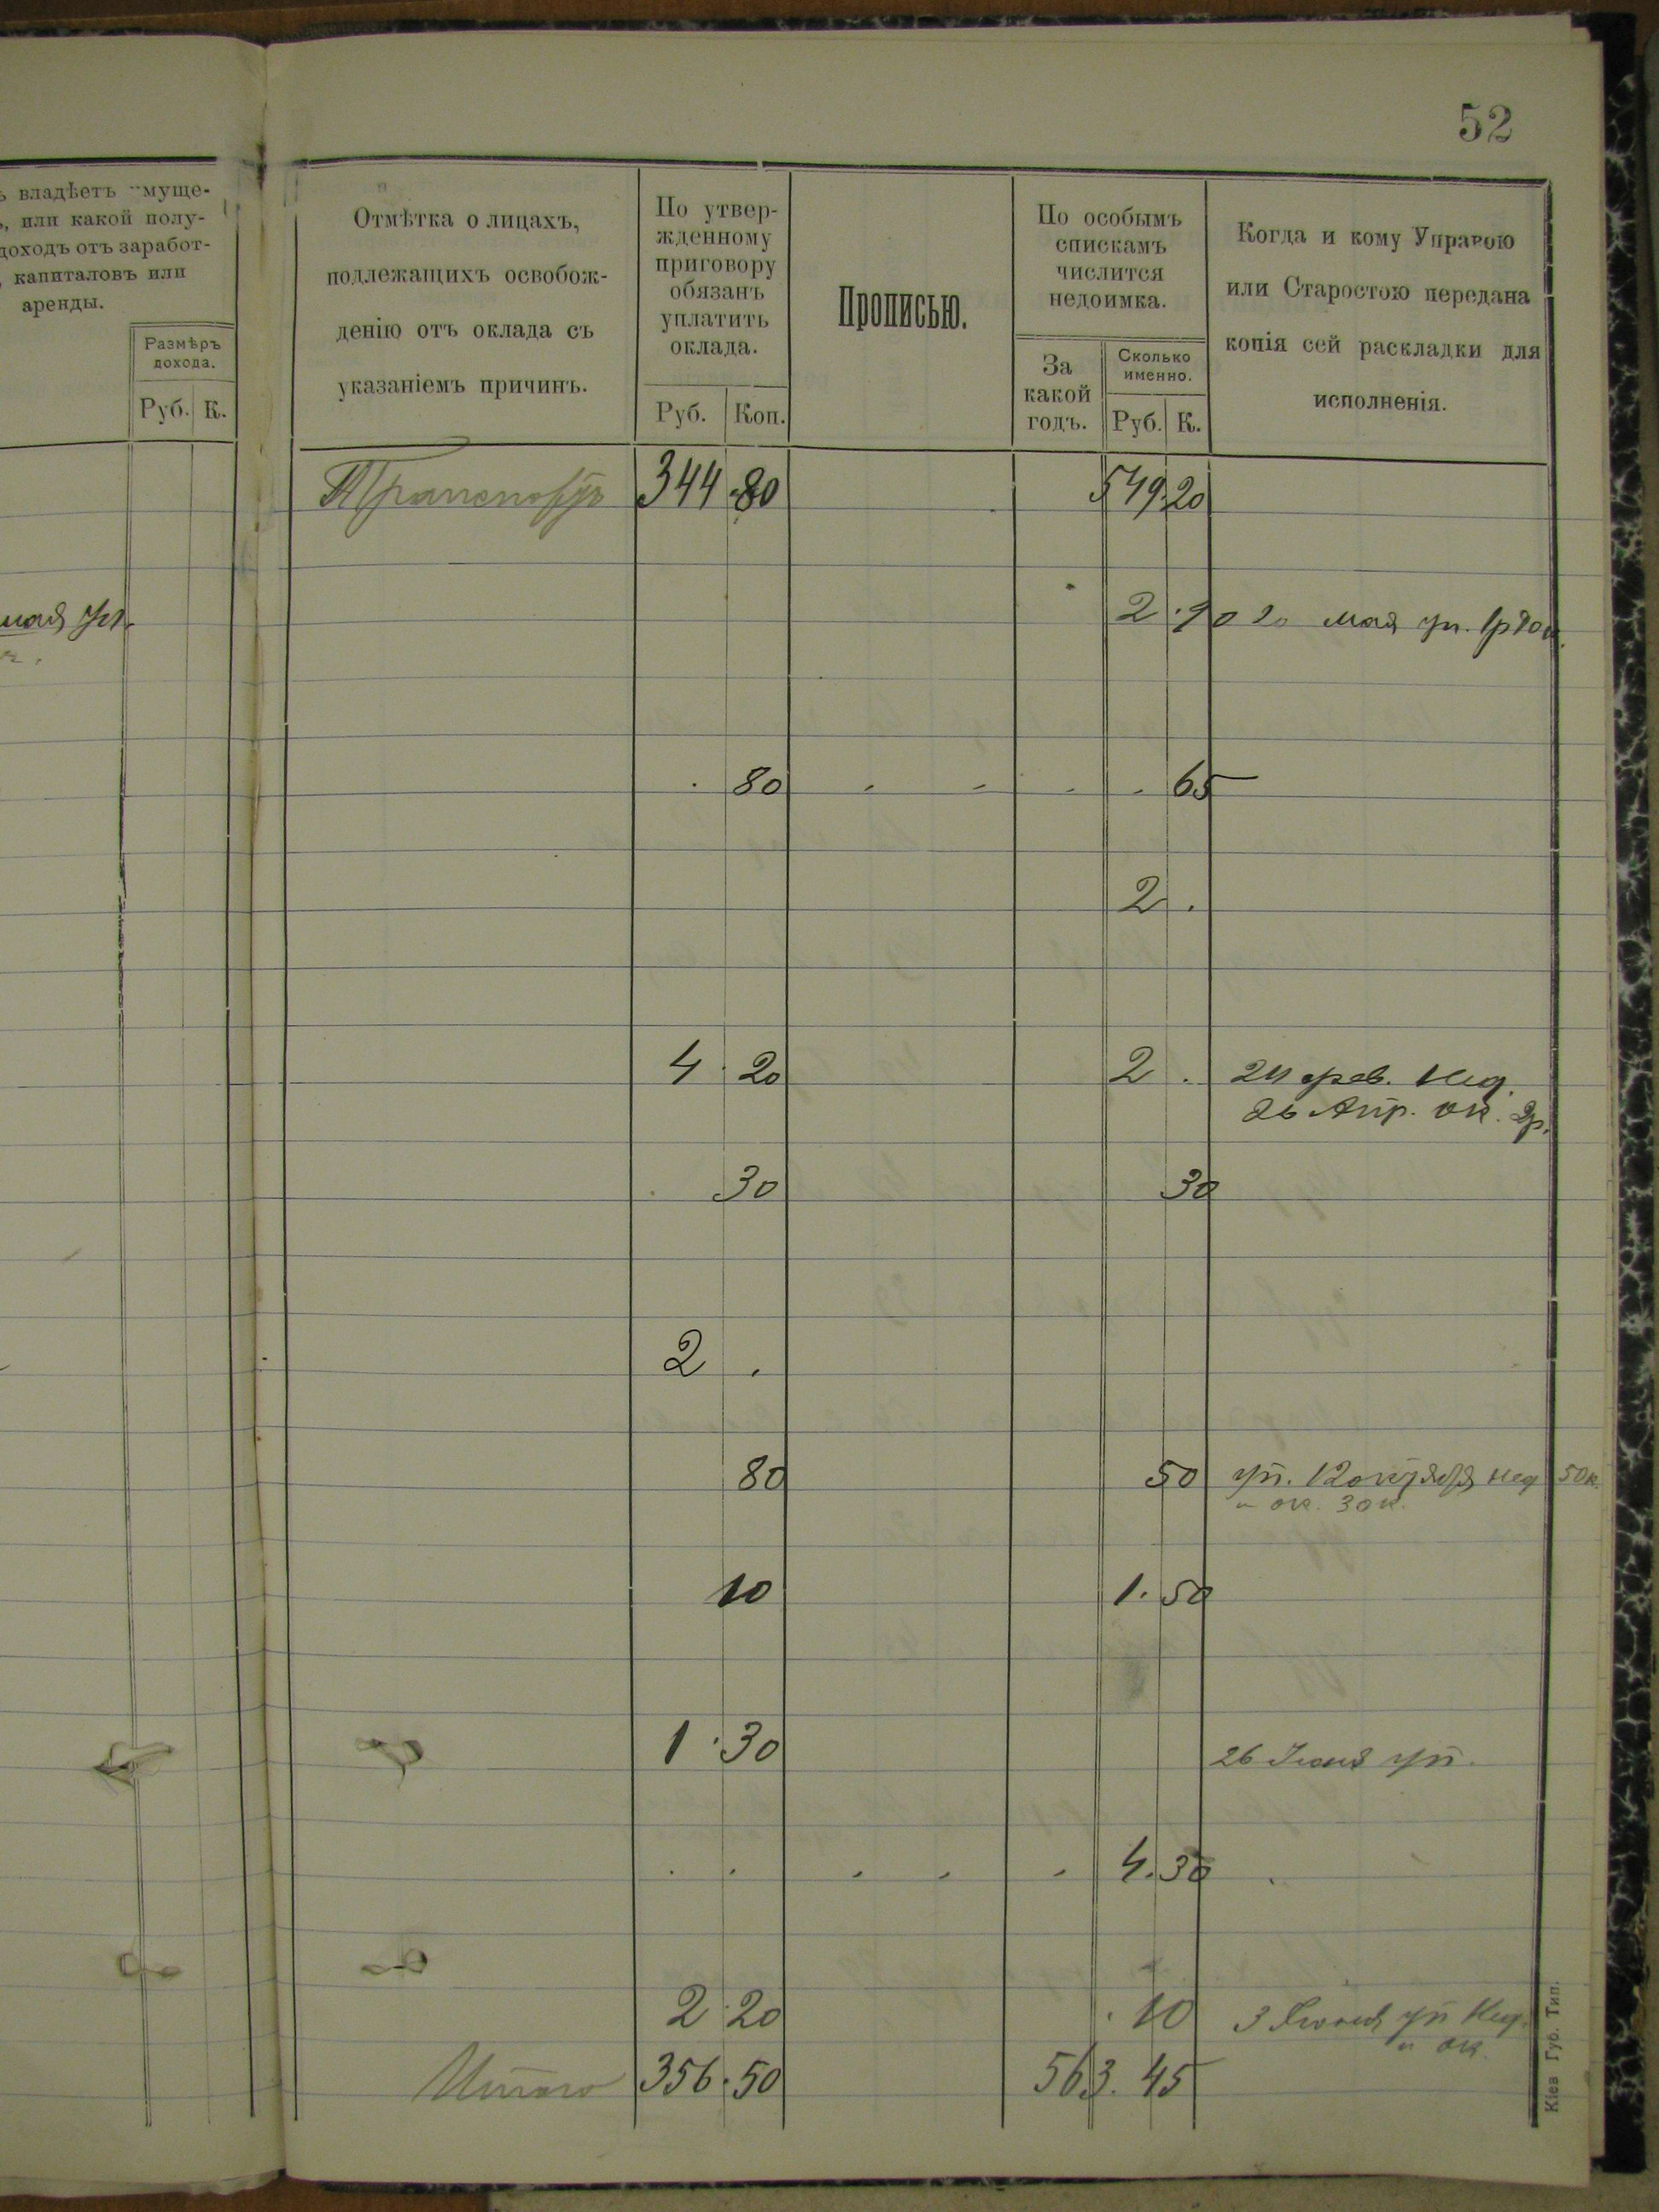 52
ъ владѣетъ имуще-
ъ, или какой полу-
доходъ отъ заработ-
, капиталовъ или
аренды.
Размѣръ
дохода.
Руб. К.
Отмѣтка о лицахъ,
подлежащихъ освобож-
денію отъ оклада съ
указаніемъ причинъ.
По утвер-
жденному
приговору
обязанъ
уплатить
оклада.
Руб. Коп.
Прописью.
По особымъ
спискамъ
числится
недоимка.
За
какой
годъ.
Сколько
именно.
Руб. К.
Когда и кому Управою
или Старостою передана
копія сей раскладки для
исполненія.
Транспортъ 344 80 549 20
мая уп.
2 20 мая уп.
80 65
2 .
4 20 2 . 24 фев. нед.
26 Апр. ок. 2р.
30 30
2 .
80 50 уп. 12 октября нед 50к.
и ок. 30 к.
10 1. 50
1 30 26 Іюня уп.
4. 30
2 20 10 3 Іюня уп нед.
и ок.
Итого 356. 50 563. 45
Кіев Губ. Тип.